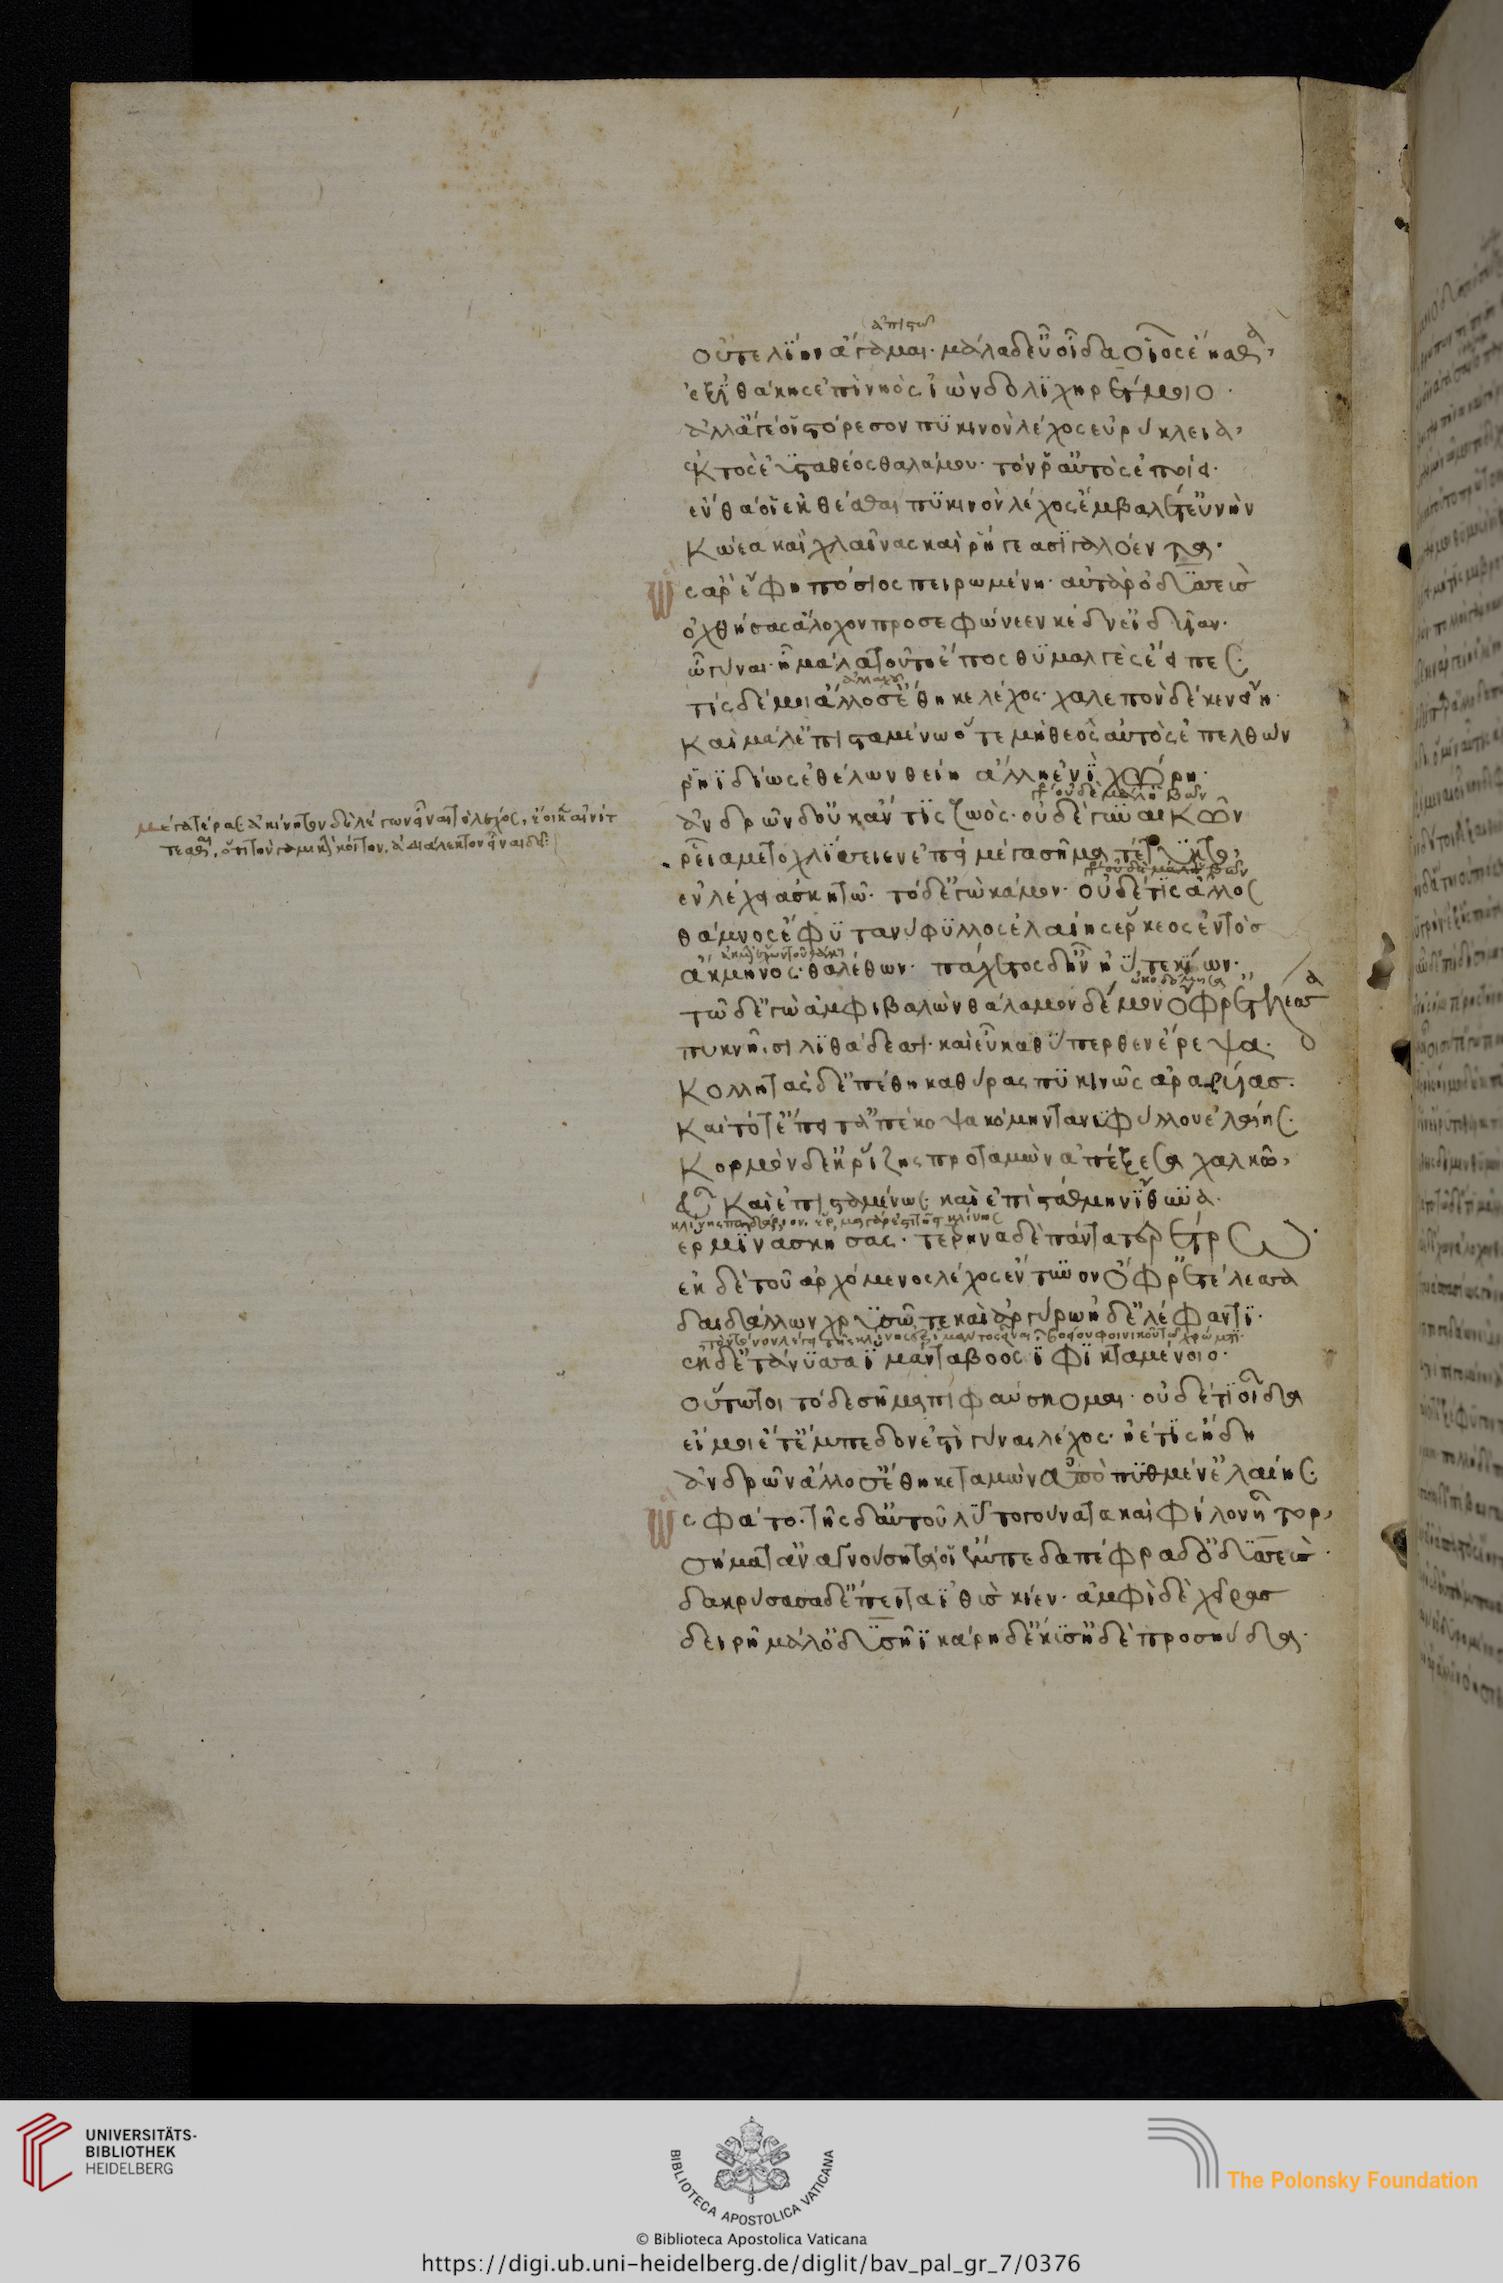 ἀπιστῶ
οὔτε λίην ἄγαμαι· μάλα δ' εὖ οἶδα οἷος ἔησθα,
ἐξ ἰθάκης ἐπὶ νηὸς ἰὼν δολιχηρέτμοιο·
ἀλλ' ἄγε οἱ στόρεσον πυκινὸν λέχος εὐρύκλεια,
ἐκτὸς ἐϋσταθέος θαλάμου· τόν ῥ' αὐτὸς ἐποίει·
ἔνθα οἱ ἐκθεῖσαι πυκινὸν λέχος ἐμβάλετ' εὐνὴν
κώεα καὶ χλαίνας καὶ ῥήγεα σιγαλόεντα·
ὣς ἄρ' ἔφη πόσιος πειρωμένη· αὐτὰρ ὀδυσσεὺς
ὀχθήσας ἄλοχον προσεφώνεεν κεδν' εἰδυῖαν·
ὦ γύναι· ἦ μάλα τοῦτο ἔπος θυμαλγὲς ἔειπες·
ἀλλαχοῦ
τίς δέ μοι ἄλλοσ' ἔθηκε λέχος· χαλεπὸν δέ κεν εἴη·
καὶ μάλ' ἐπισταμένω ὅτε μὴ θεὸς αὐτὸς ἐπελθὼν
ῥηϊδίως ἐθέλων θείη ἄλλη ἐνὶ χώρη·
ἀνδρῶν δ' οὔ κέν τις ζωὸς· οὐδὲ
μέγα τέρας ἀκίνητον δὲ λέγων εἶναι τὸ λέχος, ἔοικεν αἰνίτ
τεσθαι, ὅτι τὸν γαμικὸν κοῖτον, ἀδιάλεκτον εἶναι δεῖ:
ῥεῖα μετοχλίσσειεν ἐπεὶ μέγα σῆμα τέτυκται,
ἐν λέχει ἀσκητῶ· τὸ δ' ἐγὼ κάμον· οὐδέ τις ἄλλος
θάμνος ἔφυ τανύφυλλος ἐλαίης ἕρκεος ἐντὸς
ἀκμηνὸς θαλέθων· πάχετος δ' ἦν ἠΰτε κίων·
ᾠκοδόμησα
τῶ δ' ἐγὼ ἀμφιβαλὼν θάλαμον δέμον ὄφρ' ἐτέλεσσα
πυκνῆισι λιθάδεσσι· καὶ εὖ καθύπερθεν ἔρεψα·
κολλητὰς δ' ἐπέθηκα θύρας πυκινῶς ἀραρυίας·
καὶ τότ' ἔπειτ' ἀπέκοψα κόμην τανυφύλλου ἐλαίης·
κορμὸν δ' ἐκ ῥίζης προταμὼν ἀπέξεσα χαλκῶ,
εὖ καὶ ἐπισταμένως· καὶ ἐπὶ στάθμην ἴθυνα·
ἑρμῖν' ἀσκήσας· τέρηνα δὲ πάντα τερέτρω·
ἐκ δὲ τοῦ ἀρχόμενος λέχος ἔξεον ὄφρ' ἐτέλεσσα
δαιδάλλων χρυσῶ τε καὶ ἀργύρω ἠδ' ἐλέφαντι·
ἐκ δ' ἐτάνυσσα ἱμάντα βοὸς ἶφι κταμένοιο·
οὕτω τοι τόδε σῆμα πιφαύσκομαι· οὐδέ τι οἶδα
εἴ μοι ἔτ' ἔμπεδόν ἐστὶ γύναι λέχος· ἠέ τις ἤδη
ἀνδρῶν ἄλλοσ' ἔθηκε ταμὼν ὑπὸ πυθμέν' ἐλαίης·
ὣς φάτο· τῆς δ' αὐτοῦ λύτο γούνατα καὶ φίλον ἦτορ,
σήματ' ἀναγνούση τά οἱ ἔμπεδα πέφραδ' ὀδυσσεὺς·
δακρύσασα δ' ἔπειτα ἰθὺς κίεν· ἀμφὶ δὲ χεῖρας
δειρῆ βάλ' ὀδυσσῆϊ κάρη δ' ἔκυσ' ἠδὲ προσηύδα·
UNIVERSITÄTS-
BIBLIOTHEK
HEIDELBERG
BIBLIOTECA APOSTOLICA VATICANA
The Polonsky Foundation
© Biblioteca Apostolica Vaticana
https://digi.ub.uni-heidelberg.de/diglit/bav_pal_gr_7/0376